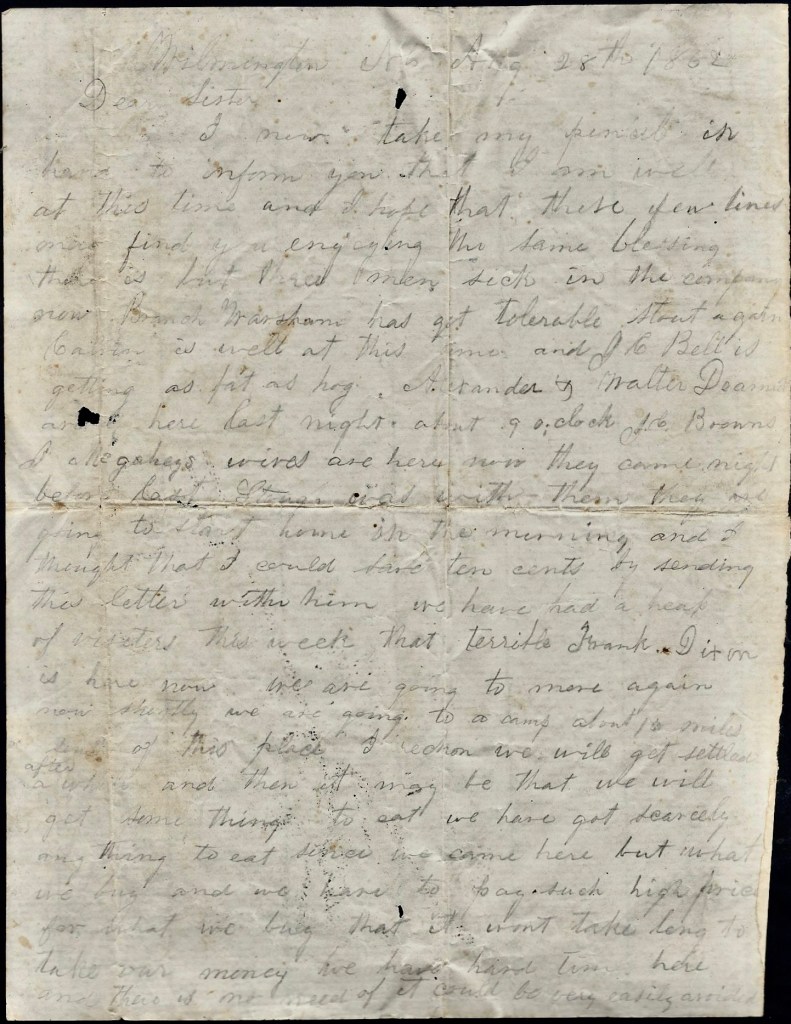 Wilmington N.C. Aug 28th 1862
Dear Sister
I now take my pensil in
hand to inform you that I am well
at this time and I hope that these few lines
may find you enjoying the same blessing.
there is but three men sick in the company
now Branch Warsham has got tolerable stout again
Calvin is well at this time and J C Bell is
getting as fat as hog. Alexander & Walter
here last night about 9 o,clock J.C. Browns
wives are here now they came night
before last with them they are
going to start home in the morning and I
thought that I could save ten cents by sending
this letter with him we have had a heap
of viseters this week that terrible Frank Dixon
is here now we are going to move again
now shortly we are going to a camp about miles
of this place I reckon we will get settled
after a while and then it may be that we will
get some thing to eat we have got scarcely
any thing to eat since we came here but what
we buy and we have to pay such high price
for what we buy that it wont take long to
take our money we have hard time here
and there is no need of it could be very easily avoided